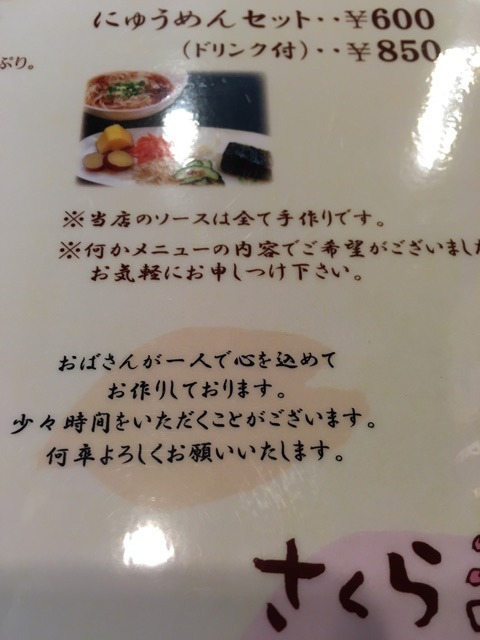 にゅうめんセット‥¥600
(ドリンク付)‥¥850
ぷり。
※当店のソースは全て手作りです。
※何かメニューの内容でご希望がございました
お気軽にお申しつけ下さい。
おばさんが一人で心を込めて
お作りしております。
少々時間をいただくことがございます。
何卒よろしくお願いいたします。
さくら